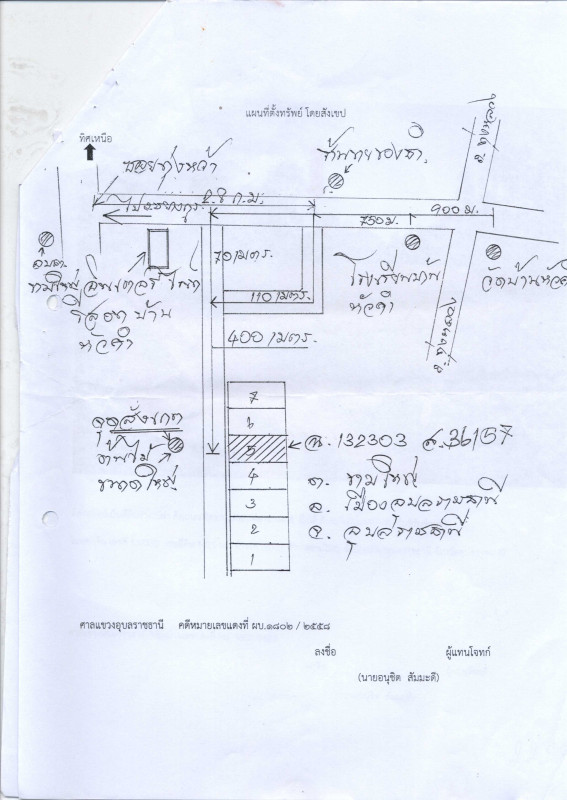 แผนที่ตั้งทรัพย์ โดยสังเขป
ทิศเหนือ
ซอยทุ่งหว้า
ร้านขายของชำ
2.8 ก.ม.
900 ม.
750 ม.
อบต.
ขามใหญ่
รีสอท บ้าน
หัวคำ
70 เมตร.
110 เมตร.
โรงเรียนบ้าน
หัวคำ
วัดบ้านหัวคำ
400 เมตร.
7
6
5
4
3
2
1
จุดสังเกต
ต้นไม้
ขนาดใหญ่
ฉ. 132303 ล. 36157
ต. ขามใหญ่
อ. เมืองอุบลราชธานี
จ. อุบลราชธานี
ศาลแขวงอุบลราชธานี คดีหมายเลขแดงที่ ผบ.๑๘๐๒ / ๒๕๕๘
ลงชื่อ ผู้แทนโจทก์
(นายอนุชิต สัมมะดี)